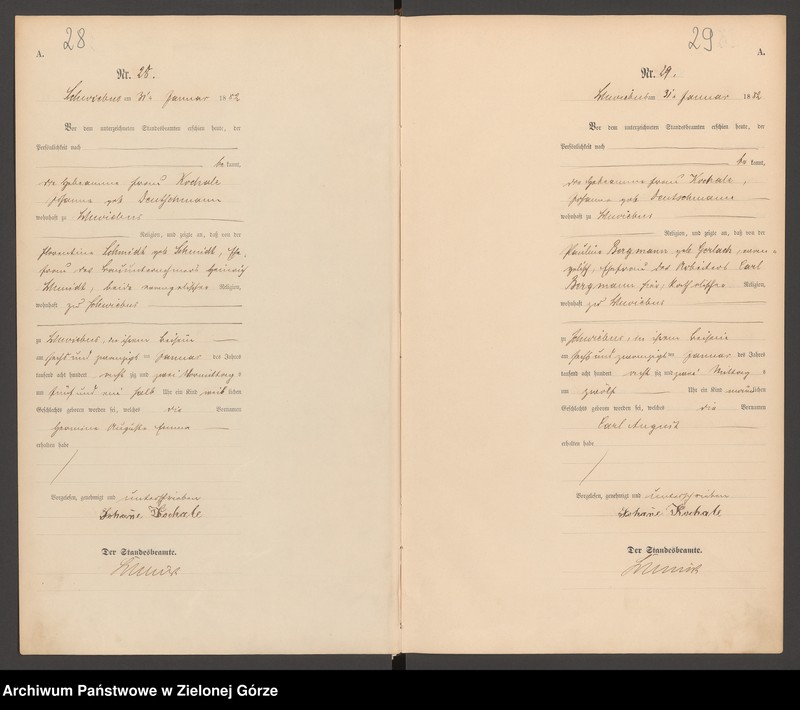 28
A.
Nr. 28.
Schwiebus am 31ten Januar 1882
Vor dem unterzeichneten Standesbeamten erschien heute, der
Persönlichkeit nach
be kannt,
die Hebeamme Frau Kochale
Johanna geb Deutschmann
wohnhaft zu Schwiebus
Religion, und zeigte an, daß von der
Florentine Schmidt geb Schmidt, Ehe-
frau des
Schmidt, beide evangelischer Religion,
wohnhaft zu Schwiebus
zu Schwiebus, in ihrem Beisein
am sechs und zwanzigsten Januar des Jahres
tausend acht hundert acht zig und zwei Vormittags
um fünf und ein halb Uhr ein Kind weib lichen
Geschlechts geboren worden sei, welches die Vornamen
Hermine Auguste Emma
erhalten habe
Vorgelesen, genehmigt und unterschrieben
Johane Kochale
Der Standesbeamte.
29
A.
Nr. 29.
Schwiebus am 31ten Januar 1882
Vor dem unterzeichneten Standesbeamten erschien heute, der
Persönlichkeit nach
be kannt,
die Hebeamme Frau Kochale,
Johanna geb Deutschmann
wohnhaft zu Schwiebus
Religion, und zeigte an, daß von der
Pauline Bergmann geb Gerlach, evan-
gelisch, Ehefrau des Arbeiters Carl
Bergmann hier, katholischer Religion,
wohnhaft zu Schwiebus
zu Schwiebus, in ihrem Beisein
am sechs und zwanzigsten Januar des Jahres
tausend acht hundert acht zig und zwei Mittags
um zwölf Uhr ein Kind männlichen
Geschlechts geboren worden sei, welches die Vornamen
Carl August
erhalten habe
Vorgelesen, genehmigt und unterschrieben
Johane Kochale
Der Standesbeamte.
Archiwum Państwowe w Zielonej Górze